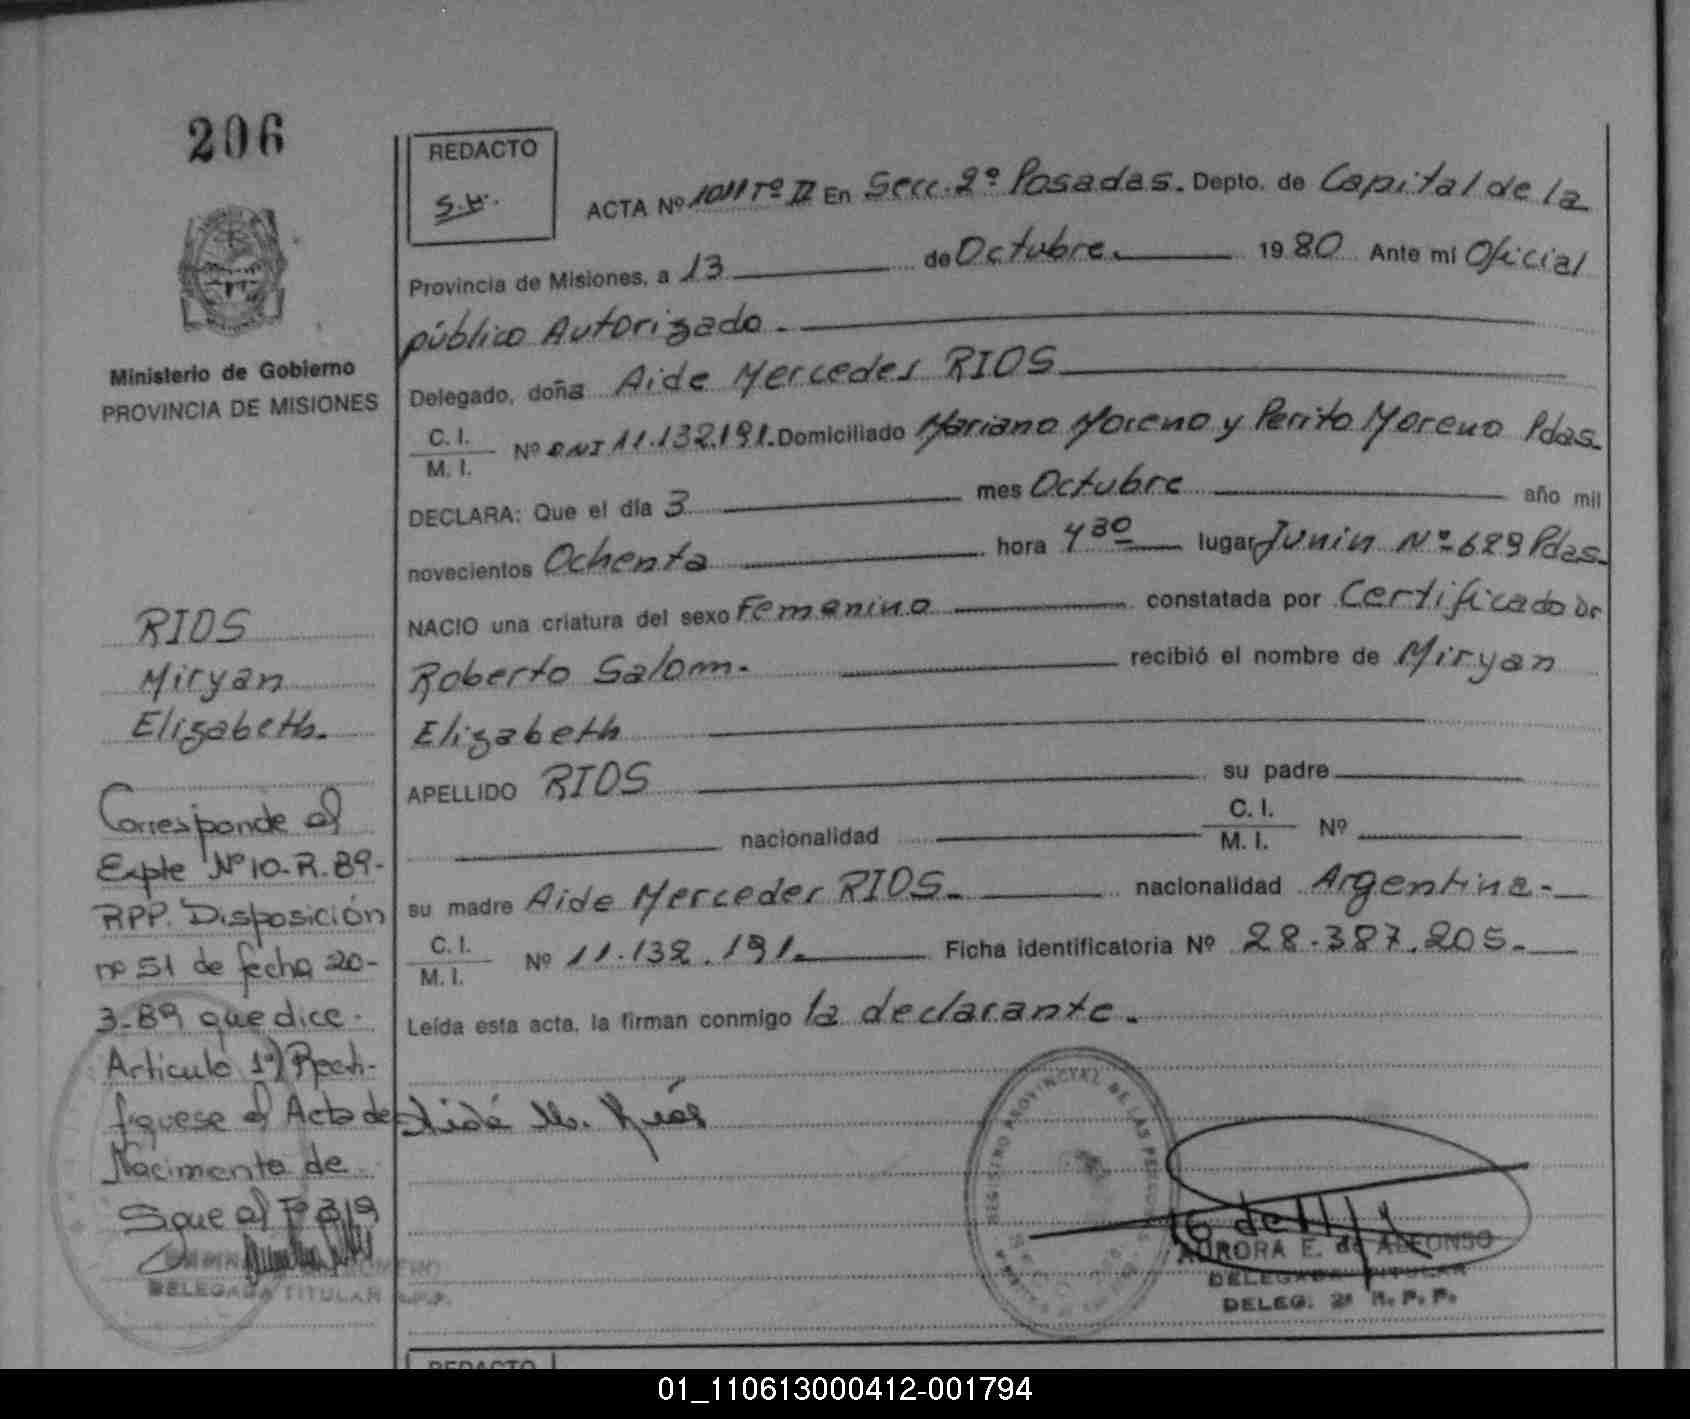 206
REDACTO
S.H.
Ministerio de Gobierno
PROVINCIA DE MISIONES
ACTA Nº 1011 Tº II En Secc. 2º Posadas. Depto. de Capital de la
Provincia de Misiones, a 13 de Octubre. 1980 Ante mi Oficial
público Autorizado.
Delegado, doña Aide Mercedes RIOS
C. I.
M. I. Nº DNI 11.132.191. Domiciliado Mariano Moreno y Perito Moreno Pdas.
DECLARA: Que el día 3 mes Octubre año mil
novecientos Ochenta hora 4 30 lugar Junin Nº 629 Pdas.
NACIO una criatura del sexo Femenino constatada por Certificado De
Roberto Salom. recibió el nombre de Miryan
Elizabeth
APELLIDO RIOS su padre
nacionalidad C. I.
M. I. Nº
su madre Aide Mercedes RIOS. nacionalidad Argentina.
C. I.
M. I. Nº 11.132.191. Ficha identificatoria Nº 28.387.205.
Leída esta acta, la firman conmigo la declarante.
Aidé M. Ríos
RIOS
Miryan
Elizabeth.
Corresponde al
Expte Nº 10-R-89-
RPP. Disposición
nº 51 de fecha 20-
3-89 que dice.
Artículo 1º) Recti-
fíquese el Acta de
Nacimiento de
Sigue al Fº 319
DELEGADA TITULAR R.P.P.
REGISTRO PROVINCIAL DE LAS PERSONAS
AURORA E. de ALFONSO
DELEGADA TITULAR
DELEG. 2ª R. P. P.
REDACTO
01_110613000412-001794